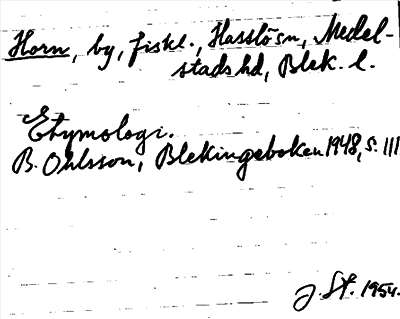 Horn, by, fiskl., Hasslö sn, Medel-
stads hd, Blek. l.
Etymologi.
B. Ohlsson, Blekingeboken 1948, s. 111
J. St. 1954.